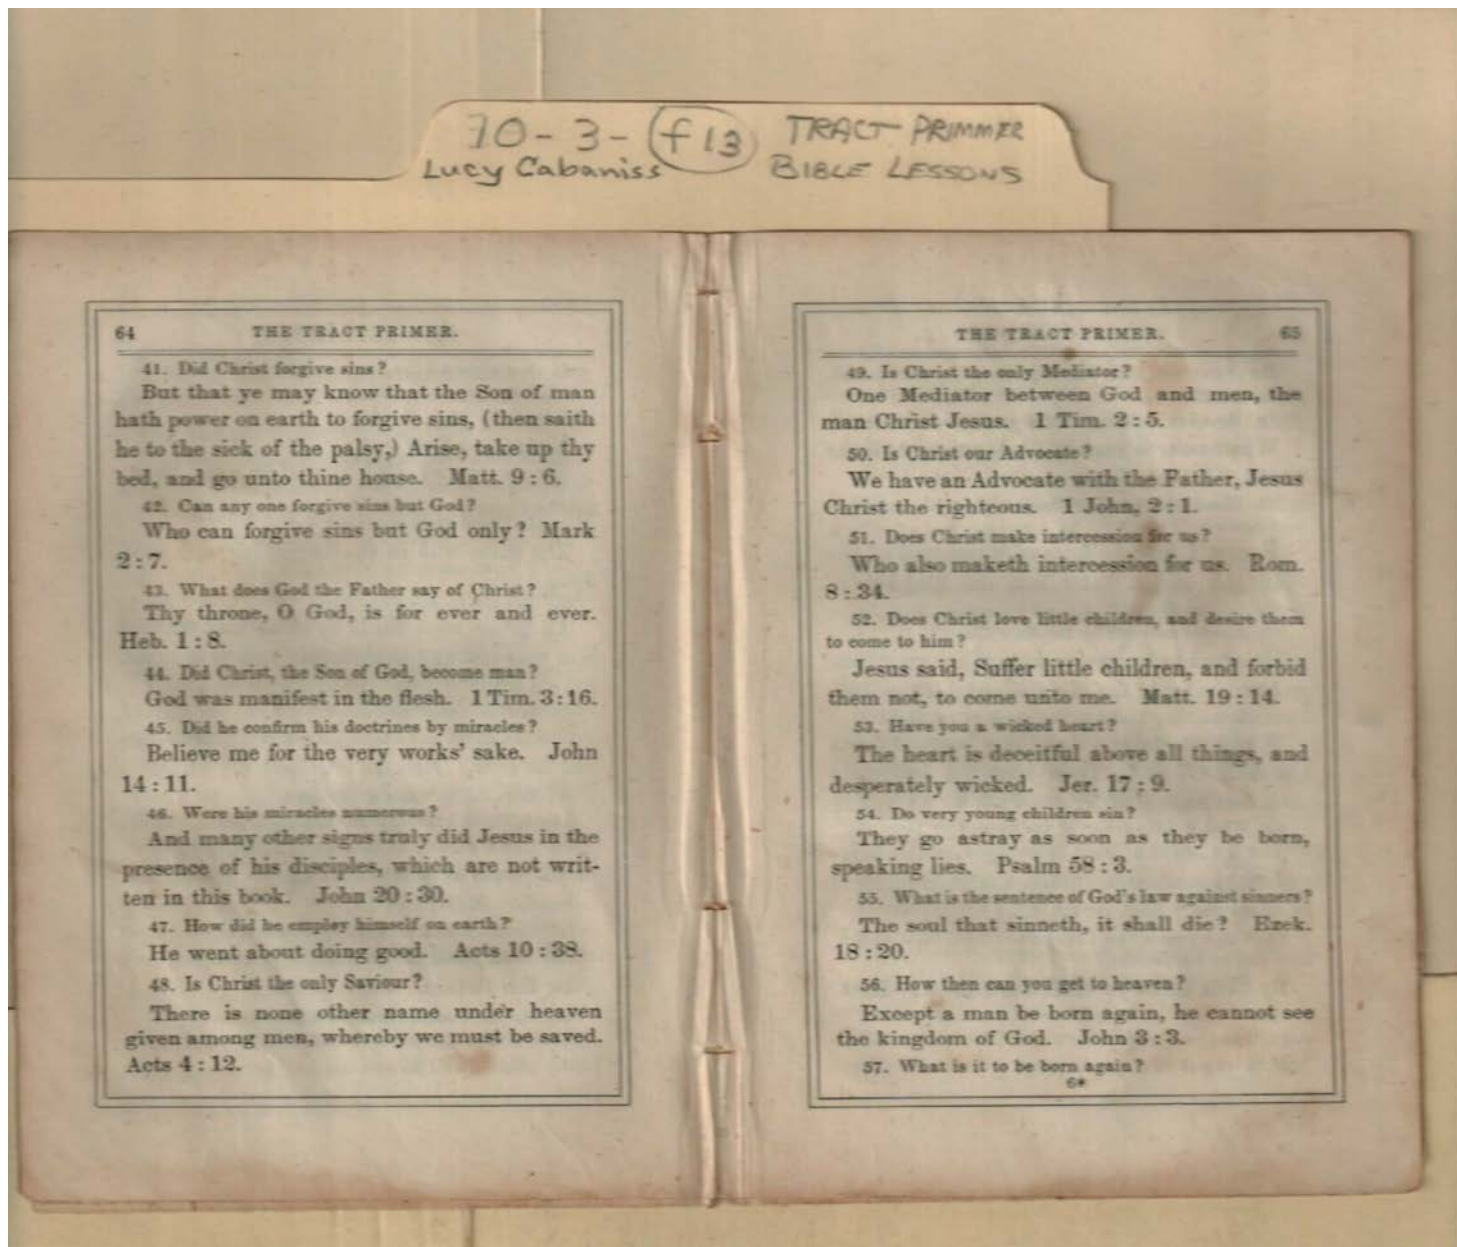 10-3-f13 TRACT PRIMMER
Lucy Cabaniss BIBLE LESSONS
64 THE TRACT PRIMER.
41. Did Christ forgive sins?
But that ye may know that the Son of man
hath power on earth to forgive sins, (then saith
he to the sick of the palsy,) Arise, take up thy
bed, and go unto thine house. Matt. 9:6.
42. Can any one forgive sins but God?
Who can forgive sins but God only? Mark
2:7.
43. What does God the Father say of Christ?
Thy throne, O God, is for ever and ever.
Heb. 1:8.
44. Did Christ, the Son of God, become man?
God was manifest in the flesh. 1 Tim. 3:16.
45. Did he confirm his doctrines by miracles?
Believe me for the very works' sake. John
14:11.
46. Were his miracles numerous?
And many other signs truly did Jesus in the
presence of his disciples, which are not writ-
ten in this book. John 20:30.
47. How did he employ himself on earth?
He went about doing good. Acts 10:38.
48. Is Christ the only Saviour?
There is none other name under heaven
given among men, whereby we must be saved.
Acts 4:12.
THE TRACT PRIMER. 65
49. Is Christ the only Mediator?
One Mediator between God and men, the
man Christ Jesus. 1 Tim. 2:5.
50. Is Christ our Advocate?
We have an Advocate with the Father, Jesus
Christ the righteous. 1 John, 2:1.
51. Does Christ make intercession for us?
Who also maketh intercession for us. Rom.
8:34.
52. Does Christ love little children, and desire them
to come to him?
Jesus said, Suffer little children, and forbid
them not, to come unto me. Matt. 19:14.
53. Have you a wicked heart?
The heart is deceitful above all things, and
desperately wicked. Jer. 17:9.
54. Do very young children sin?
They go astray as soon as they be born,
speaking lies. Psalm 58:3.
55. What is the sentence of God's law against sinners?
The soul that sinneth, it shall die? Ezek.
18:20.
56. How then can you get to heaven?
Except a man be born again, he cannot see
the kingdom of God. John 3:3.
57. What is it to be born again?
6*